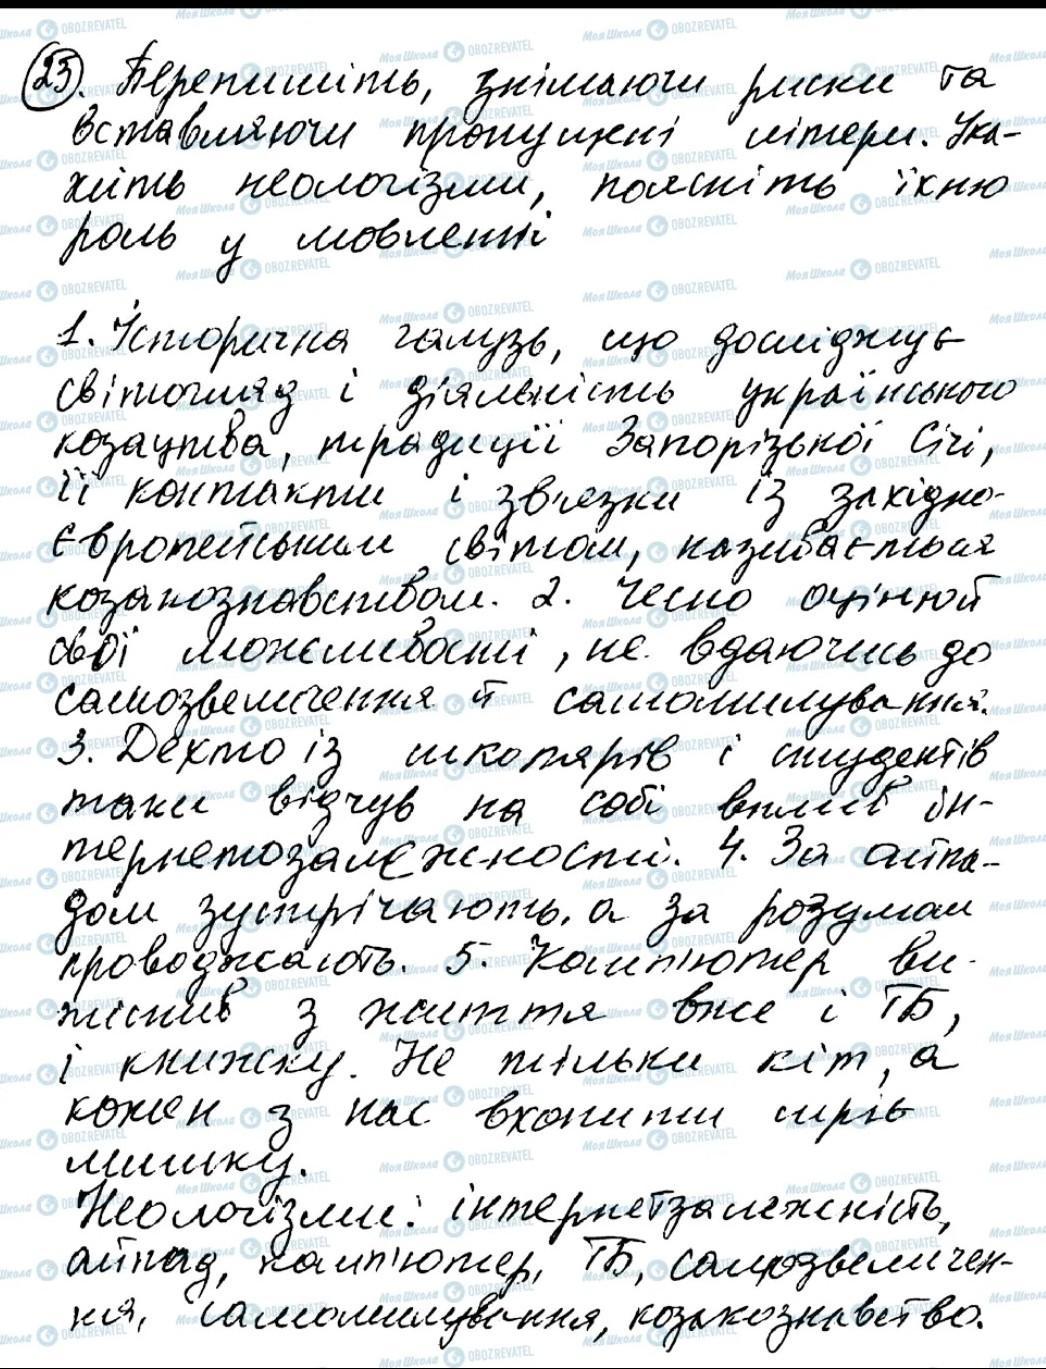 23. Перепишіть, знімаючи риски та
вставляючи пропущені літери. Ука-
жіть неологізми, поясніть їхню
роль у мовленні
1. Історична галузь, що досліджує
світогляд і діяльність українського
козацтва, традиції Запорізької Січі,
її контакти і зв'язки із західно-
європейським світом, називається
козакознавством. 2. Чесно оцінюй
свої можливості, не вдаючись до
самозвеличення й самомилування.
3. Дехто із школярів і студентів
таки відчув на собі вплив ін-
тернетозалежності. 4. За айпа-
дом зустрічають, а за розумом
проводжають. 5. Комп'ютер ви-
тіснив з життя вже і ТБ,
і книжку. Не тільки кіт, а
кожен з нас вхопити мріє
мишку.
Неологізми: інтернетзалежність,
айпад, комп'ютер, ТБ, самозвеличен-
ня, самомилування, козакознавство.